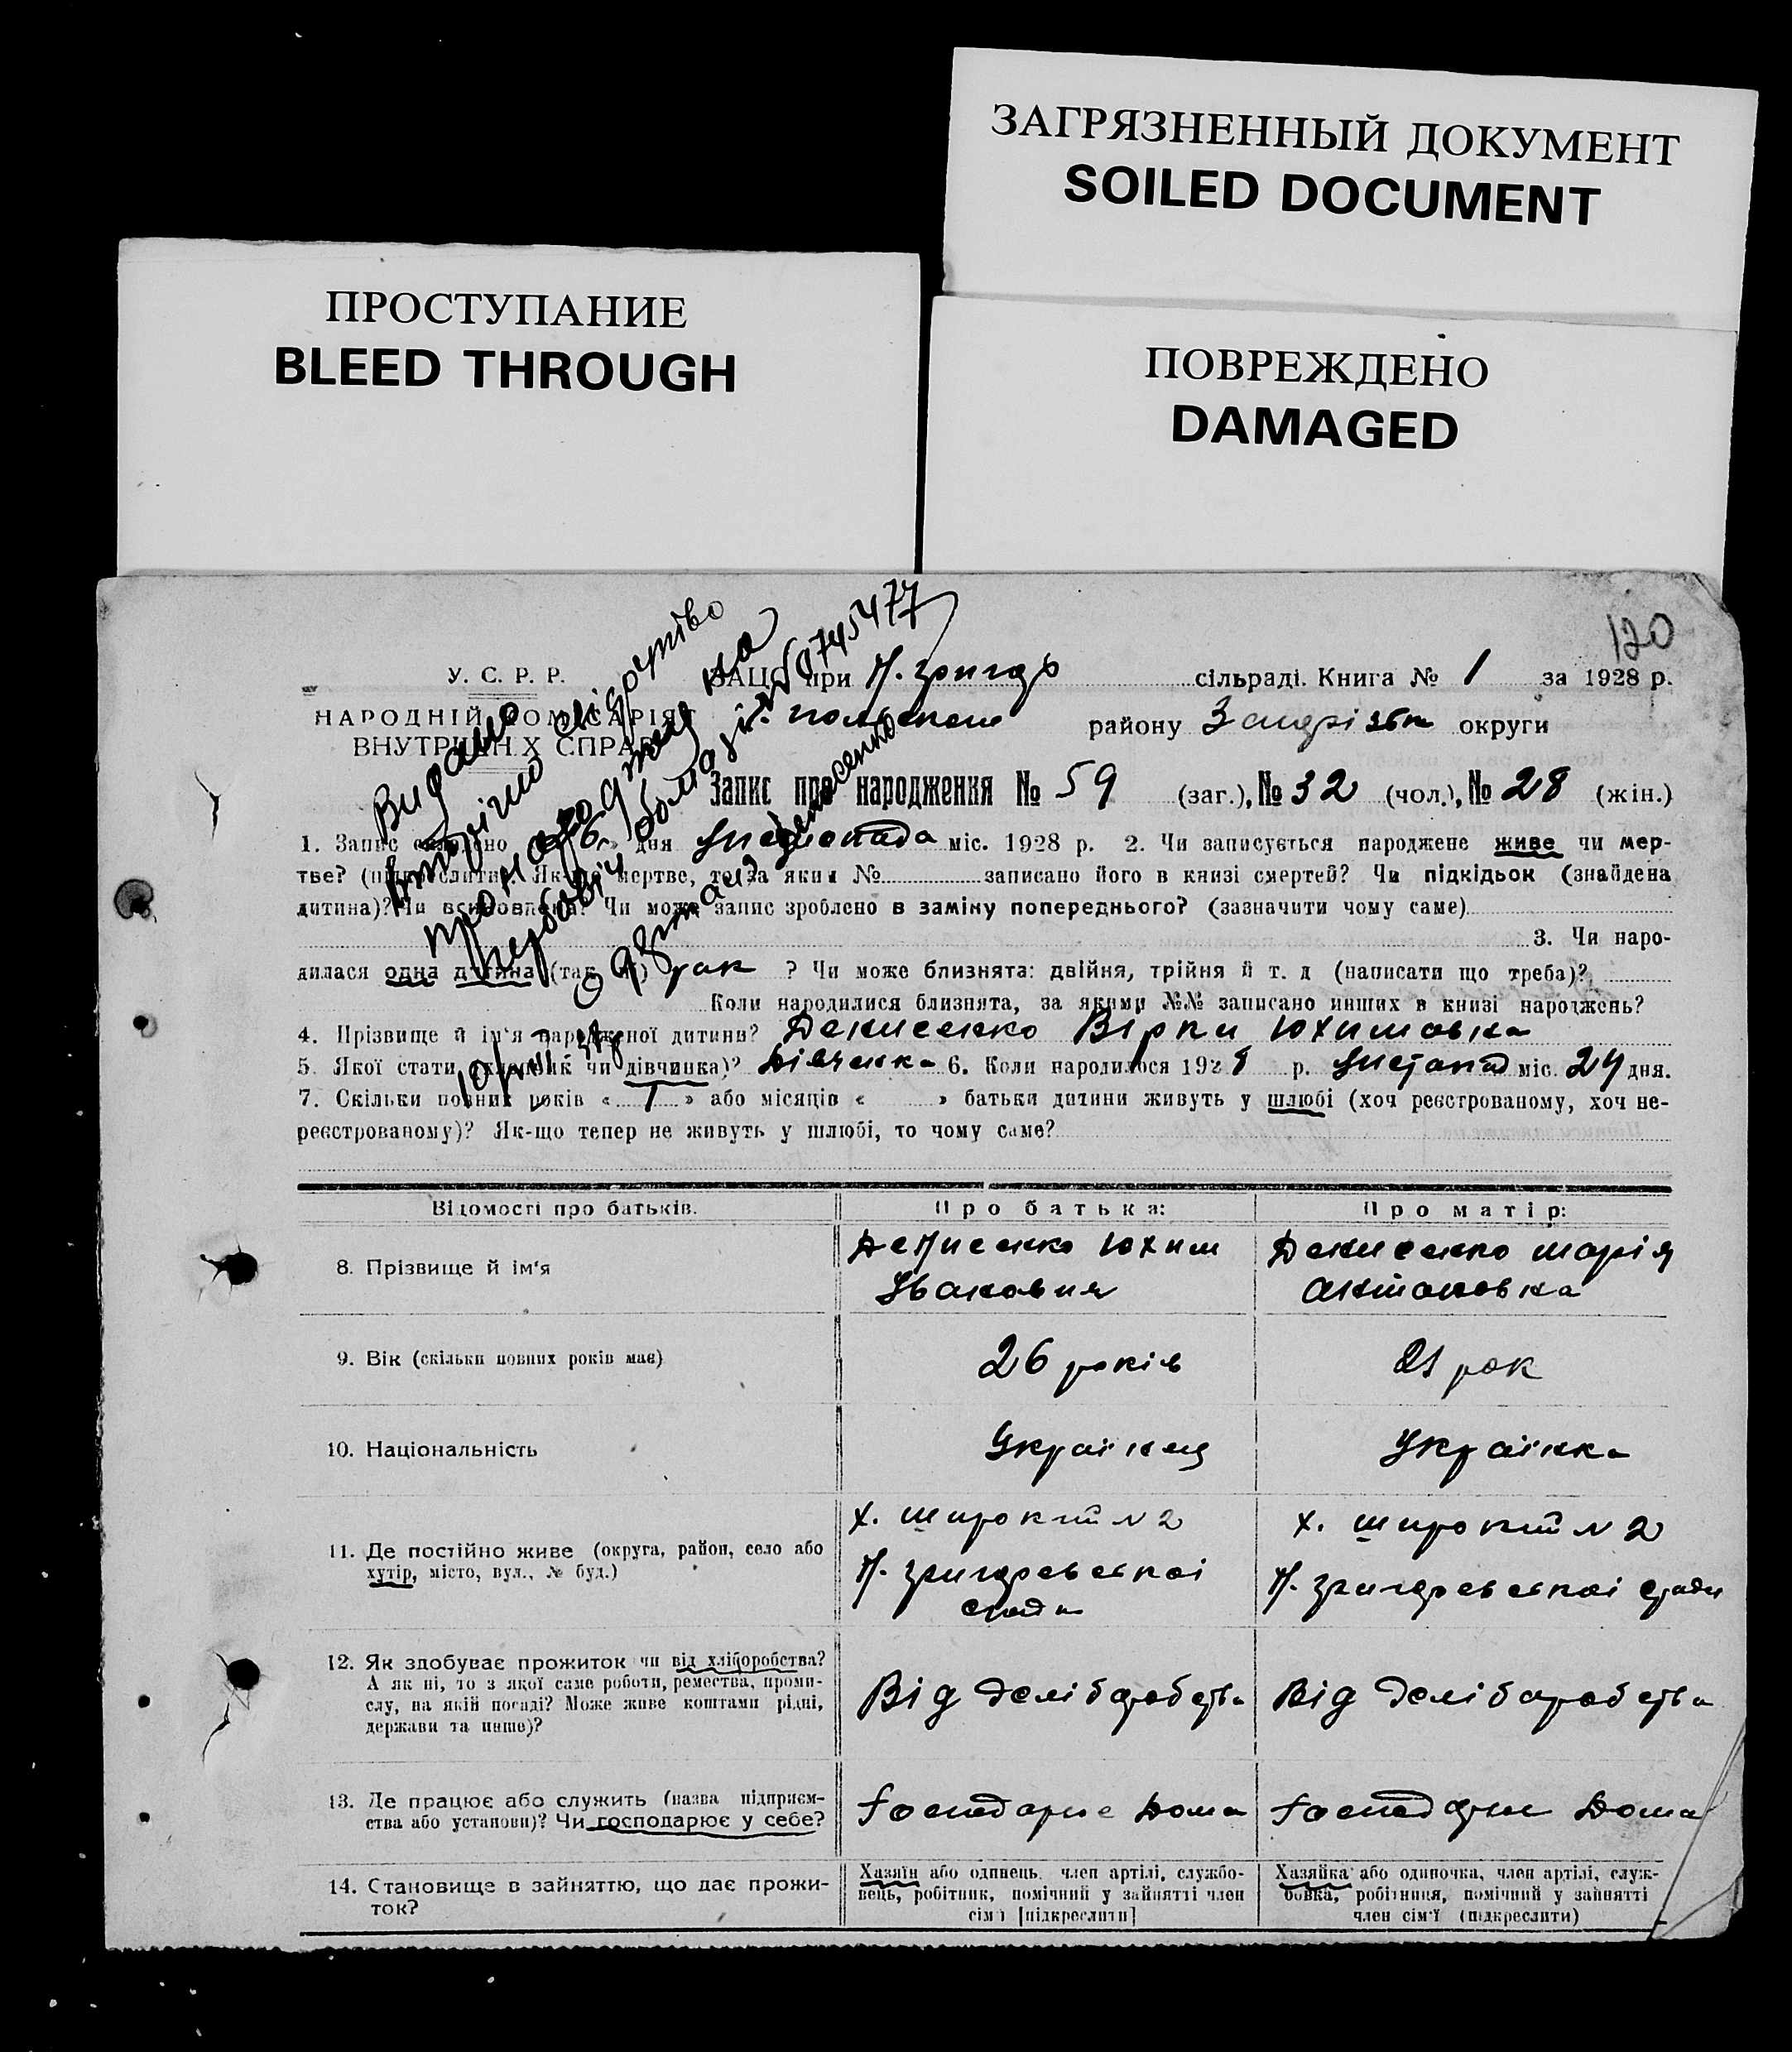 ЗАГРЯЗНЕННЫЙ ДОКУМЕНТ
SOILED DOCUMENT
ПРОСТУПАНИЕ
BLEED THROUGH
ПОВРЕЖДЕНО
DAMAGED
120
У. С. Р. Р.
НАРОДНІЙ КОМІСАРІЯТ
ВНУТРІШНІХ СПРАВ
Видано
свідоцтво
про народжен на
ЗАЦС при Н. григор сільраді. Книга № 1 за 1928 р.
району округи
Запис про народження № 59 (заг.), № 32 (чол.), № 28 (жін.)
1. Запис складено 26 дня Листопада міс. 1928 р. 2. Чи записується народжене живе чи мер-
тве? (підкреслити). Як-що мертве, то за яким № записано його в книзі смертей? Чи підкідьок (знайдена
дитина)? Чи всиновлена? Чи може запис зроблено в заміну попереднього? (зазначити чому саме)
3. Чи наро-
дилася одна дитина (так, ні) так ? Чи може близнята: двійня, трійня й т. д (написати що треба)?
Коли народилися близнята, за якими №№ записано инших в книзі народжень?
4. Прізвище й ім'я народженої дитини? Денисенко Вірка Юхимовна
5. Якої стати (хлопчик чи дівчинка)? Дівченка 6. Коли народилося 1928 р. Листопад міс. 24 дня.
7. Скільки повних років « 1 » або місяців « » батьки дитини живуть у шлюбі (хоч реєстрованому, хоч не-
реєстрованому)? Як-що тепер не живуть у шлюбі, то чому саме?
Відомості про батьків. Про батька: Про матір:
8. Прізвище й ім'я
Денисенко Юхим
Иванович
Денисенко Марія
Антоновна
9. Вік (скільки повних років має) 26 років 21 рок
10. Національність Українец Українка
11. Де постійно живе (округа, район, село або
хутір, місто, вул., № буд.)
х. Широкий N 2
Н. григоревської
сради
х. Широкий N 2
Н. григоревської сради
12. Як здобуває прожиток чи від хліборобства?
А як ні, то з якої саме роботи, ремества, проми-
слу, на якій посаді? Може живе коштами рідні,
держави та инше)?
Від
Від
13. Де працює або служить (назва підприєм-
ства або установи)? Чи господарює у себе?
Господарює Дома
Господарює Дома
14. Становище в зайняттю, що дає прожи-
ток?
Хазяїн або одинець, член артілі, службо-
вець, робітник, помічний у зайнятті член
сім'ї [підкреслити]
Хазяйка або одиночка, член артілі, служ-
бовка, робітниця, помічний у зайнятті
член сім'ї (підкреслити)